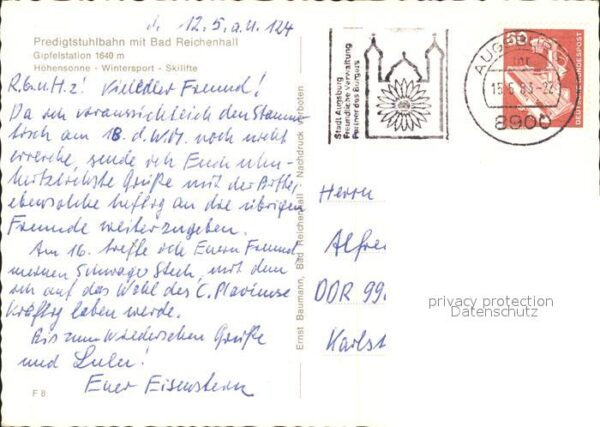 d. 12.5. a.U. 124
Predigtstuhlbahn mit Bad Reichenhall
Gipfelstation 1640 m
Höhensonne - Wintersport - Skilifte
R.G.u.H.z! Vieledler Freund!
Da ich voraussichtlich den Stamm-
tisch am 18. d. W.M. noch nicht
erreiche, sende ich Euch uhu-
herzlichste Grüße mit der Bitte,
ebensolche huftig an die übrigen
Freunde weiterzugeben.
Am 16. treffe ich Euern Freund
meinen Schwager Stech, mit dem
ich auf das Wohl des C. Plavniense
kräftig laben werde.
Bis zum Wiedersehen Grüße
und Lulu!
Euer Eisenstern
F 8
Ernst Baumann, Bad Reichenhall Nachdruck verboten
Stadt Augsburg
Freundliche Verwaltung
Partner des Bürgers
AUGSBURG
15.5.83-22
8900
60
DEUTSCHE BUNDESPOST
Herrn
Alfre
DDR 99.
Karlst
privacy protection
Datenschutz